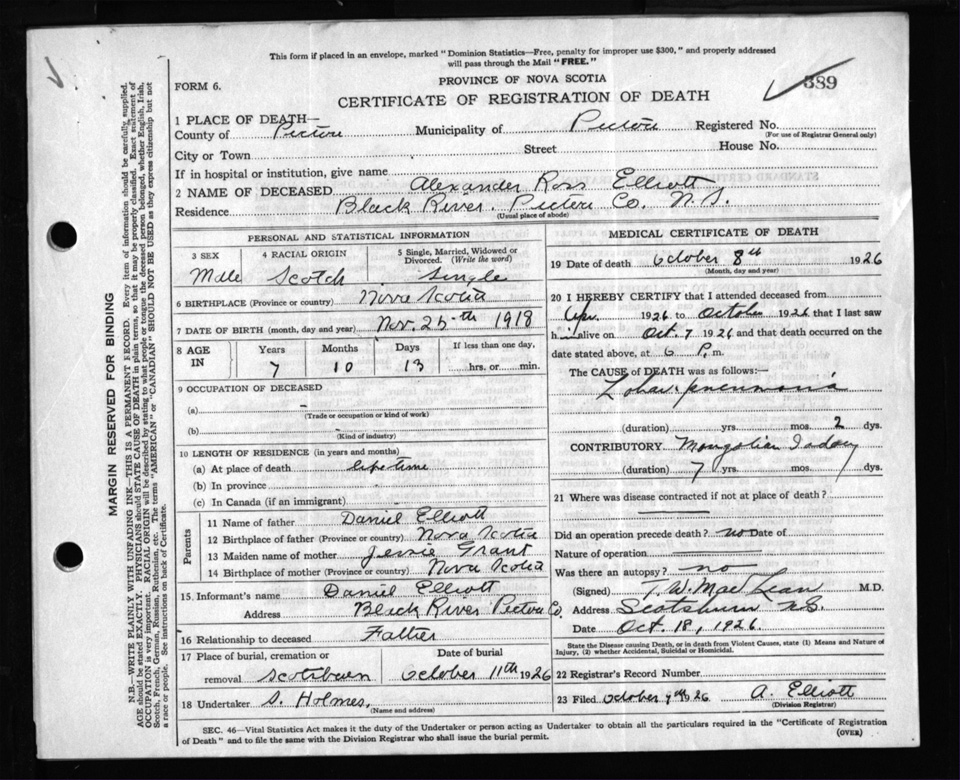 This form if placed in an envelope, marked "Dominion Statistics—Free, penalty for improper use $300," and properly addressed
will pass through the Mail "FREE."
PROVINCE OF NOVA SCOTIA
FORM 6.
389
CERTIFICATE OF REGISTRATION OF DEATH
1 PLACE OF DEATH—
County of Pictou Municipality of Pictou Registered No.
(For use of Registrar General only)
City or Town Street House No.
If in hospital or institution, give name
2 NAME OF DECEASED Alexander Ross Elliott
Residence Black River. Pictou Co. N.S.
(Usual place of abode)
PERSONAL AND STATISTICAL INFORMATION
3 SEX 4 RACIAL ORIGIN 5 Single, Married, Widowed or Divorced. (Write the word)
Male Scotch Single
6 BIRTHPLACE (Province or country) Nova Scotia
7 DATE OF BIRTH (month, day and year) Nov. 25th 1918
8 AGE IN Years Months Days If less than one day,
7 10 13 hrs. or min.
9 OCCUPATION OF DECEASED
(a) -
(Trade or occupation or kind of work)
(b)
(Kind of industry)
10 LENGTH OF RESIDENCE (in years and months)
(a) At place of death life time
(b) In province
(c) In Canada (if an immigrant)
Parents
11 Name of father Daniel Elliott
12 Birthplace of father (Province or country) Nova Scotia
13 Maiden name of mother Jessie Grant
14 Birthplace of mother (Province or country) Nova Scotia
15. Informant's name Daniel Elliott
Address Black River Pictou Co.
16 Relationship to deceased Father
17 Place of burial, cremation or removal Scotsburn Date of burial October 11th 1926
18 Undertaker S. Holmes,
(Name and address)
MEDICAL CERTIFICATE OF DEATH
19 Date of death October 8th 1926
(Month, day and year)
20 I HEREBY CERTIFY that I attended deceased from
Apr. 1926 to October 1926 that I last saw
him alive on Oct. 7 1926 and that death occurred on the
date stated above, at 6 P. m.
The CAUSE of DEATH was as follows:—
Lobar pneumonia
(duration) yrs. mos. 2 dys.
CONTRIBUTORY Mongolian Idiocy
(duration) 7 yrs. mos. dys.
21 Where was disease contracted if not at place of death?
Did an operation precede death? no Date of
Nature of operation
Was there an autopsy? no
(Signed) W. MacLean M.D.
Address Scotsburn N.S.
Date Oct. 18, 1926.
State the Disease causing Death, or in death from Violent Causes, state (1) Means and Nature of
Injury, (2) whether Accidental, Suicidal or Homicidal.
22 Registrar's Record Number
23 Filed October 9th 26 A. Elliott
(Division Registrar)
SEC. 46—Vital Statistics Act makes it the duty of the Undertaker or person acting as Undertaker to obtain all the particulars required in the "Certificate of Registration
of Death" and to file the same with the Division Registrar who shall issue the burial permit.
(OVER)
MARGIN RESERVED FOR BINDING
N.B.—WRITE PLAINLY WITH UNFADING INK—THIS IS A PERMANENT RECORD. Every item of information should be carefully supplied.
AGE should be stated EXACTLY. PHYSICIANS should STATE CAUSE OF DEATH in plain terms, so that it may be properly classified. Exact statement of
OCCUPATION is very important. RACIAL ORIGIN will be described by stating to what people or tongue the deceased person belonged, whether English, Irish,
Scotch, French, German, Russian, Ruthenian, etc. The terms "AMERICAN" or "CANADIAN" SHOULD NOT BE USED as they express citizenship but not
a race or people. See instructions on back of Certificate.